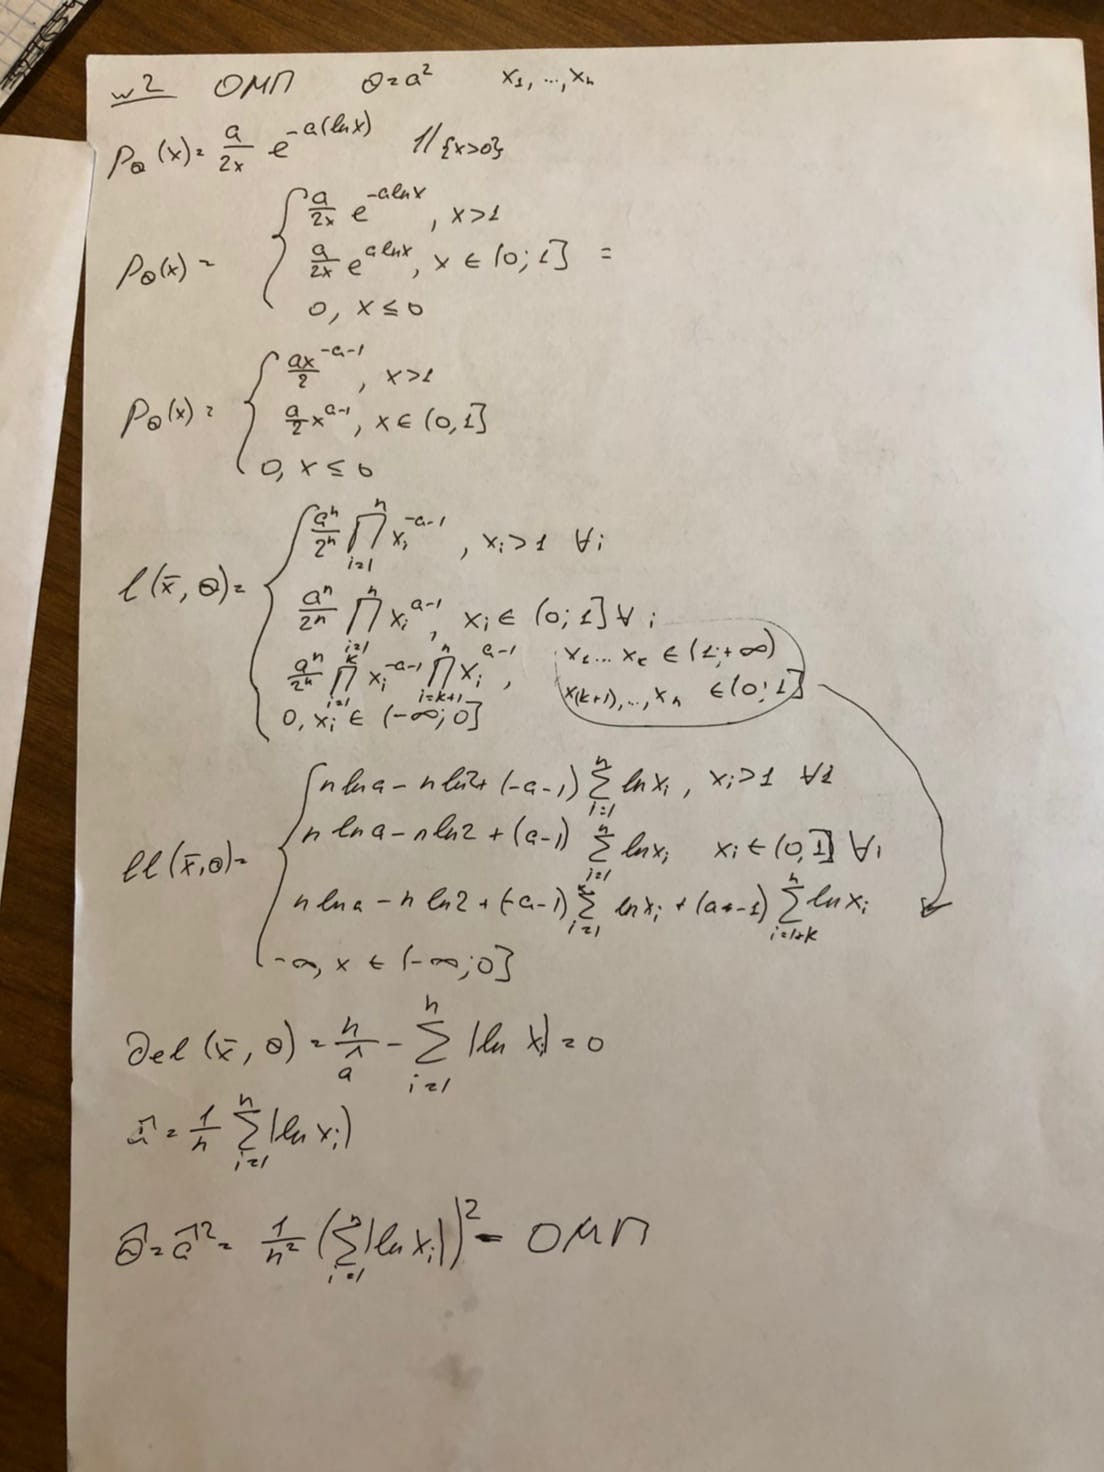 №2 ОМП θ=a² x₁, ..., xₙ
p_θ(x) = a/2x e^{-a(ln x)} 1/{x>0}
p_θ(x) = { a/2x e^{-a ln x}, x>1
a/2x e^{a ln x}, x ∈ (0; 1] =
0, x ≤ 0
p_θ(x) = { ax^{-a-1}/2, x>1
a/2 x^{a-1}, x ∈ (0, 1]
0, x ≤ 0
l(x̄, θ) = { aⁿ/2ⁿ ∏_{i=1}^{n} x_i^{-a-1}, x_i>1 ∀i
aⁿ/2ⁿ ∏_{i=1}^{n} x_i^{a-1}, x_i ∈ (0; 1] ∀i
aⁿ/2ⁿ ∏_{i=1}^{k} x_i^{-a-1} ∏_{i=k+1}^{n} x_i^{a-1}, x₁...x_k ∈ (1; +∞)
x_{(k+1)}, ..., xₙ ∈ (0; 1]
0, x_i ∈ (-∞; 0]
ll(x̄, θ) = { n ln a - n ln 2 + (-a-1) ∑_{i=1}^{n} ln x_i, x_i>1 ∀i
n ln a - n ln 2 + (a-1) ∑_{i=1}^{n} ln x_i x_i ∈ (0, 1] ∀i
n ln a - n ln 2 + (-a-1) ∑_{i=1}^{k} ln x_i + (a-1) ∑_{i=1+k}^{n} ln x_i
-∞, x ∈ (-∞; 0]
∂el(x̄, θ) = n/â - ∑_{i=1}^{n} |ln x_i| = 0
â = 1/n ∑_{i=1}^{n} |ln x_i|
θ̂ = â² = 1/n² (∑_{i=1}^{n} |ln x_i|)² - ОМП